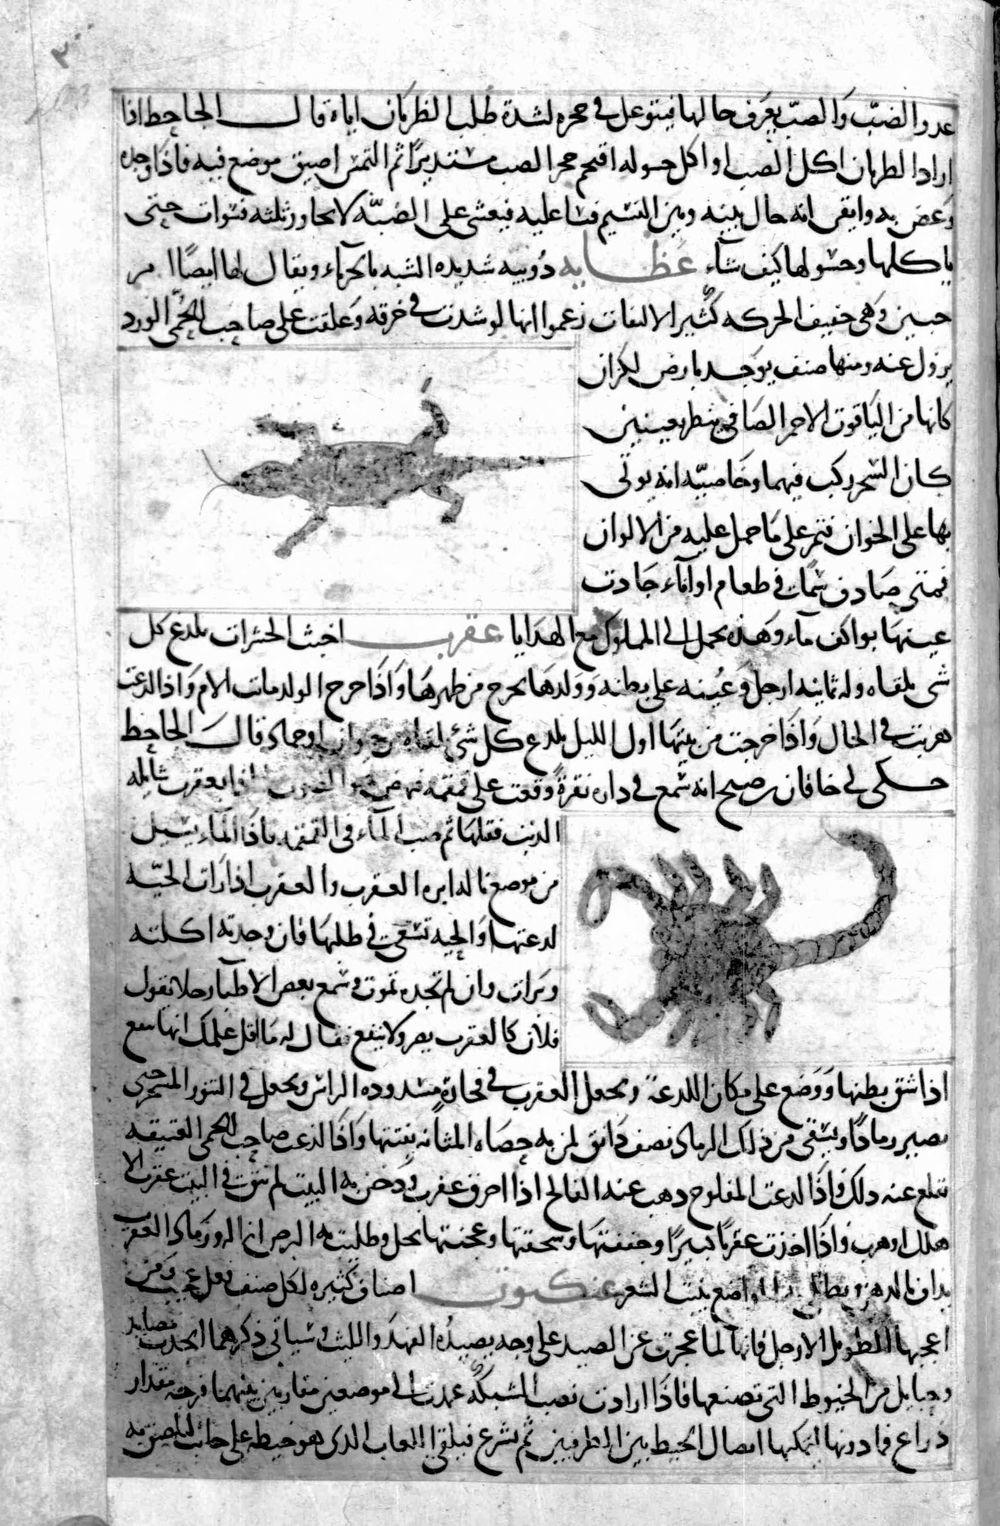 عدو الضبّ والضبّ يعرف حالها فيتوغل في جحره لشدة طلب الظربان اياه قال الجاحظ اذا
اراد الظربان اكل الضب او اكل حسوله اقتحم جحر الضب مستدبرًا ثم التمس اضيق موضع فيه فاذا وجده
وغص به وايقن انه حال بينه وبين النسيم فسا عليه فيغشى على الضبّه لا يجاوز ثلثه فسوات حتى
ياكلها وحسولها كيف شاء عظايه دويبه شديده الشبه بالحرباء ويقال لها ايضًا ام
حبين وهي خفيف الحركه كثير الالتفات زعموا انها لو شدت في خرقه وعلقت على صاحب الحمّى الورد
يزول عنه ومنها صنف يوجد بارض
كانها من الياقوت الاحمر الصافي ينظر بعينين
كان السحر ركب فيهما وخاصيّه انه يوتى
بها على الخوان فتمر على ما حمل عليه من الالوان
فمتى صادف سمًا في طعام او اناء جادت
عينها بواكف ماء وهذه تحمل الى الملوك مع الهدايا عقرب اخبث الحشرات يلدغ كل
شى يلقاه وله ثمانيه ارجل وعينه على بطنه وولدها يخرج من ظهرها واذا خرج الولد مات الام واذا لدغت
هربت في الحال واذا خرجت من بيتها اول الليل يلدغ كل شئ لقاه من حيوان او جماد قال الجاحظ
حكى لي خاقان بن صبيح انه سمع في داره نقرة وقعت على قمقمه فنهض نحو الصوت فاذا بعقرب شايله
الذنب فقتلها ثم صب الماء في القمقمه فاذا الماء يسيل
من موضع ناله ابره العقرب والعقرب اذا رات الحيّه
لدغتها والحيه تسعى في طلبها فان وجدته اكلته
وبرات وان لم تجده تموت وسمع بعض الاطباء رجلا يقول
فلان كالعقرب يضر ولا ينفع فقال له ما اقل علمك انها تنفع
اذا شق بطنها ووضع على مكان اللدغة ويجعل العقرب في فخارة مشدوده الراس ويجعل في التنور المسجر حتى
يصير رمادًا ويسقى من ذلك الرماد نصف دانق لمن به حصاه المثانه يفتتها واذا لدغ صاحب الحمى العتيقه
تقلع عنه ذلك واذا لدغت المفلوج ذهب عنه الفالج اذا احرق عقرب ودخن به البيت لم تبق في البيت عقرب الا
هلك او هرب واذا اخذت عقربًا كبيرًا وجففتها وسحقتها وعجنتها بخل وطليت به البرص ازاله ورماد العقرب
يداف بالدهن ويطلى به المواضع ينبت الشعر عنكبوت اصناف كثيره لكل صنف فعل عجيب ومن
اعجبها الطويل الارجل فانها لما عجزت عن الصيد على وجه يصيده الفهد والليث وسياتي ذكرهما اتخذت مصايد
وحبايل من الخيوط التي تصنعها فاذا ارادت نصب الشبكه عمدت الى موضعين متقاربين بينهما فرجه مقدار
ذراع فما دونها ليمكنها اتصال الخيط بين الطرفين ثم تشرع فيلقي اللعاب الذي هو خيطه على جانب ليلتصق به